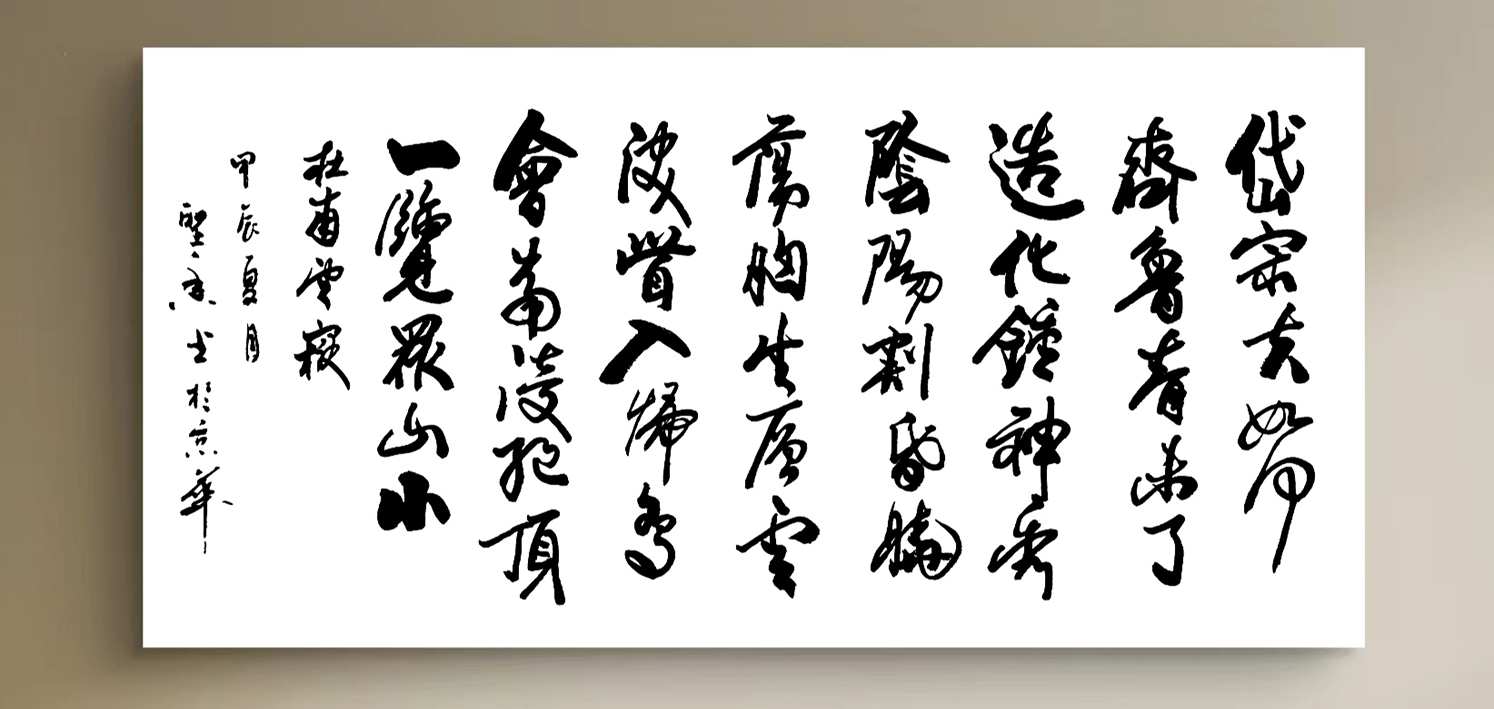 岱宗夫如何
齊魯青未了
造化鍾神秀
陰陽割昏曉
蕩胸生層雲
決眥入歸鳥
會當凌絕頂
一覽眾山小
杜甫望嶽
甲辰夏月
書於京華